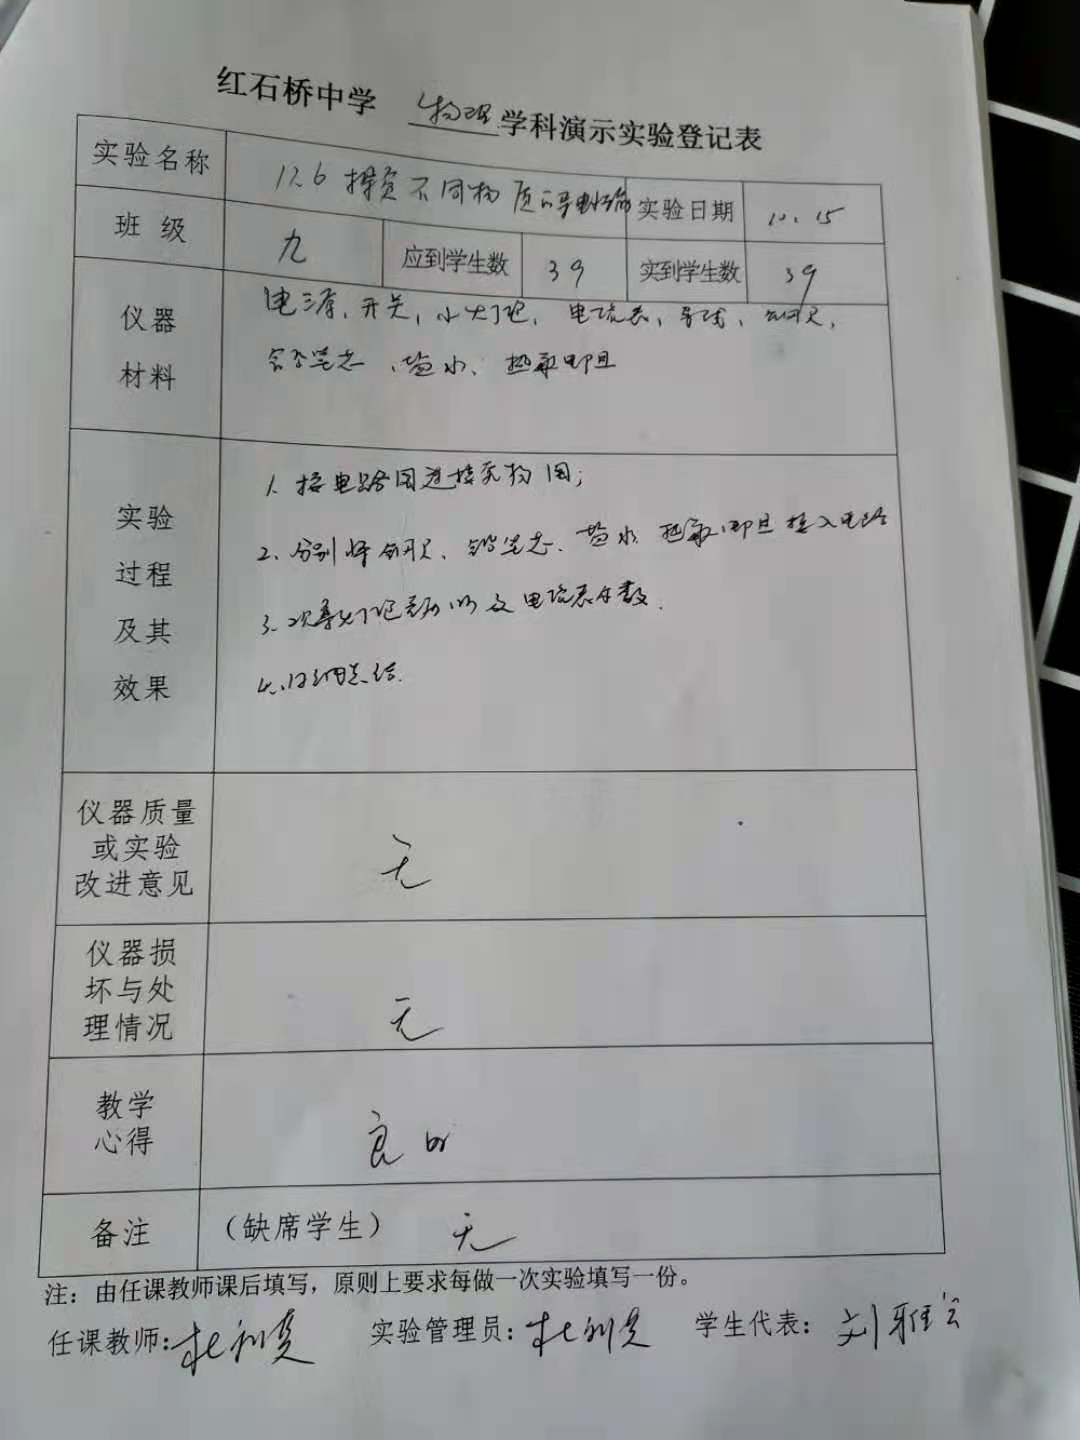 红石桥中学 物理 学科演示实验登记表
实验名称 12.6 探究不同物质的导电性能 实验日期 10.15
班 级 九 应到学生数 39 实到学生数 39
仪器材料 电源、开关、小灯泡、电流表、导线、钢尺、
铅笔芯、盐水、热敏电阻
实验过程及其效果 1. 按电路图连接实物图;
2. 分别将钢尺、铅笔芯、盐水、热敏电阻接入电路
3. 观察灯泡亮度以及电流表示数.
4. 归纳总结.
仪器质量或实验改进意见 无
仪器损坏与处理情况 无
教学心得 良好
备注 (缺席学生) 无
注:由任课教师课后填写,原则上要求每做一次实验填写一份。
任课教师: 实验管理员: 学生代表:刘雅